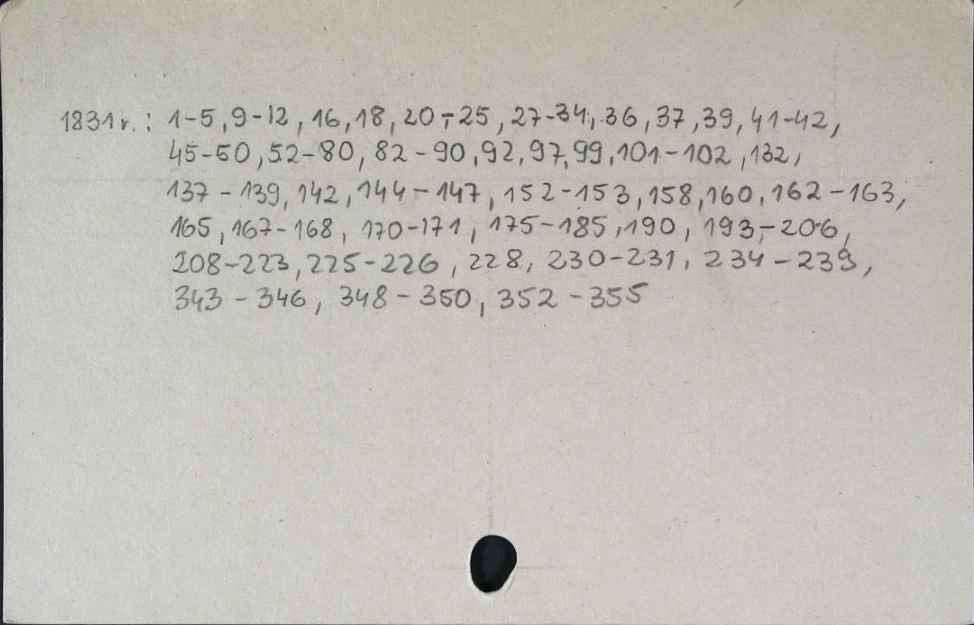 1831 r. : 1-5, 9-12, 16, 18, 20-25, 27-34, 36, 37, 39, 41-42,
45-50, 52-80, 82-90, 92, 97, 99, 101-102, 132,
137-139, 142, 144-147, 152-153, 158, 160, 162-163,
165, 167-168, 170-171, 175-185, 190, 193-206,
208-223, 225-226, 228, 230-231, 234-239,
343-346, 348-350, 352-355